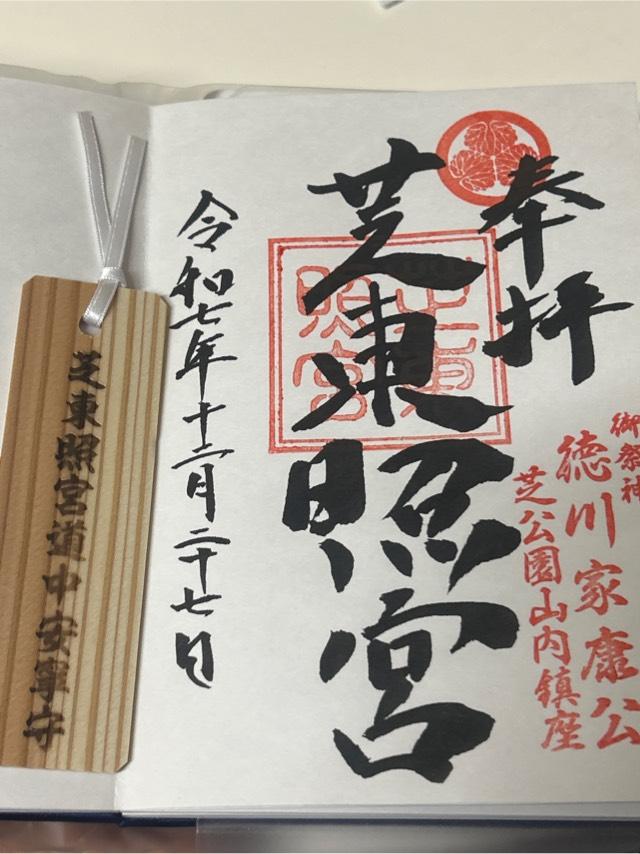 奉拝
御祭神
徳川家康公
芝公園山内鎮座
芝東照宮
芝東照宮
令和七年十二月二十七日
芝東照宮道中安寧守